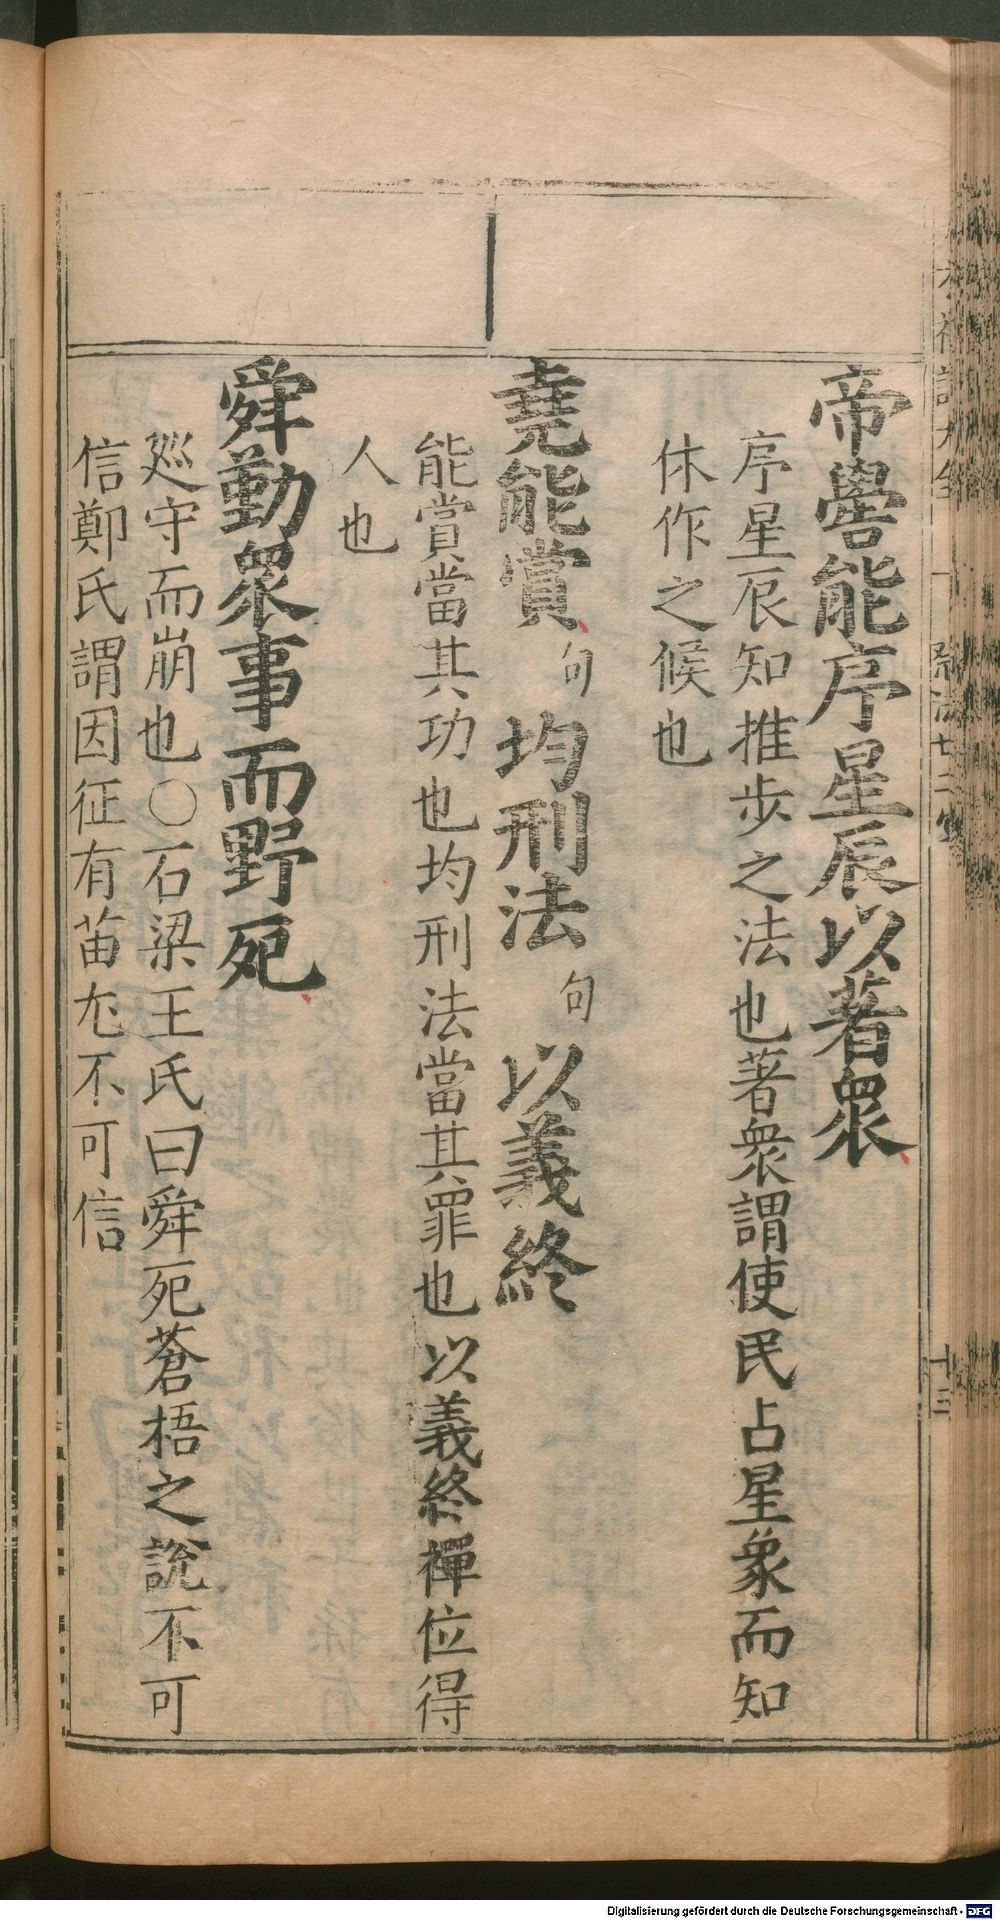 帝嚳能序星辰以著衆
序星辰知推步之法也著衆謂使民占星象而知
休作之候也
堯能賞句均刑法句以義終
能賞當其功也均刑法當其罪也以義終禪位得
人也
舜勤衆事而野死
廵守而崩也○石梁王氏曰舜死蒼梧之說不可
信鄭氏謂因征有苗尤不可信
十三
Digitalisierung gefördert durch die Deutsche Forschungsgemeinschaft - DFG